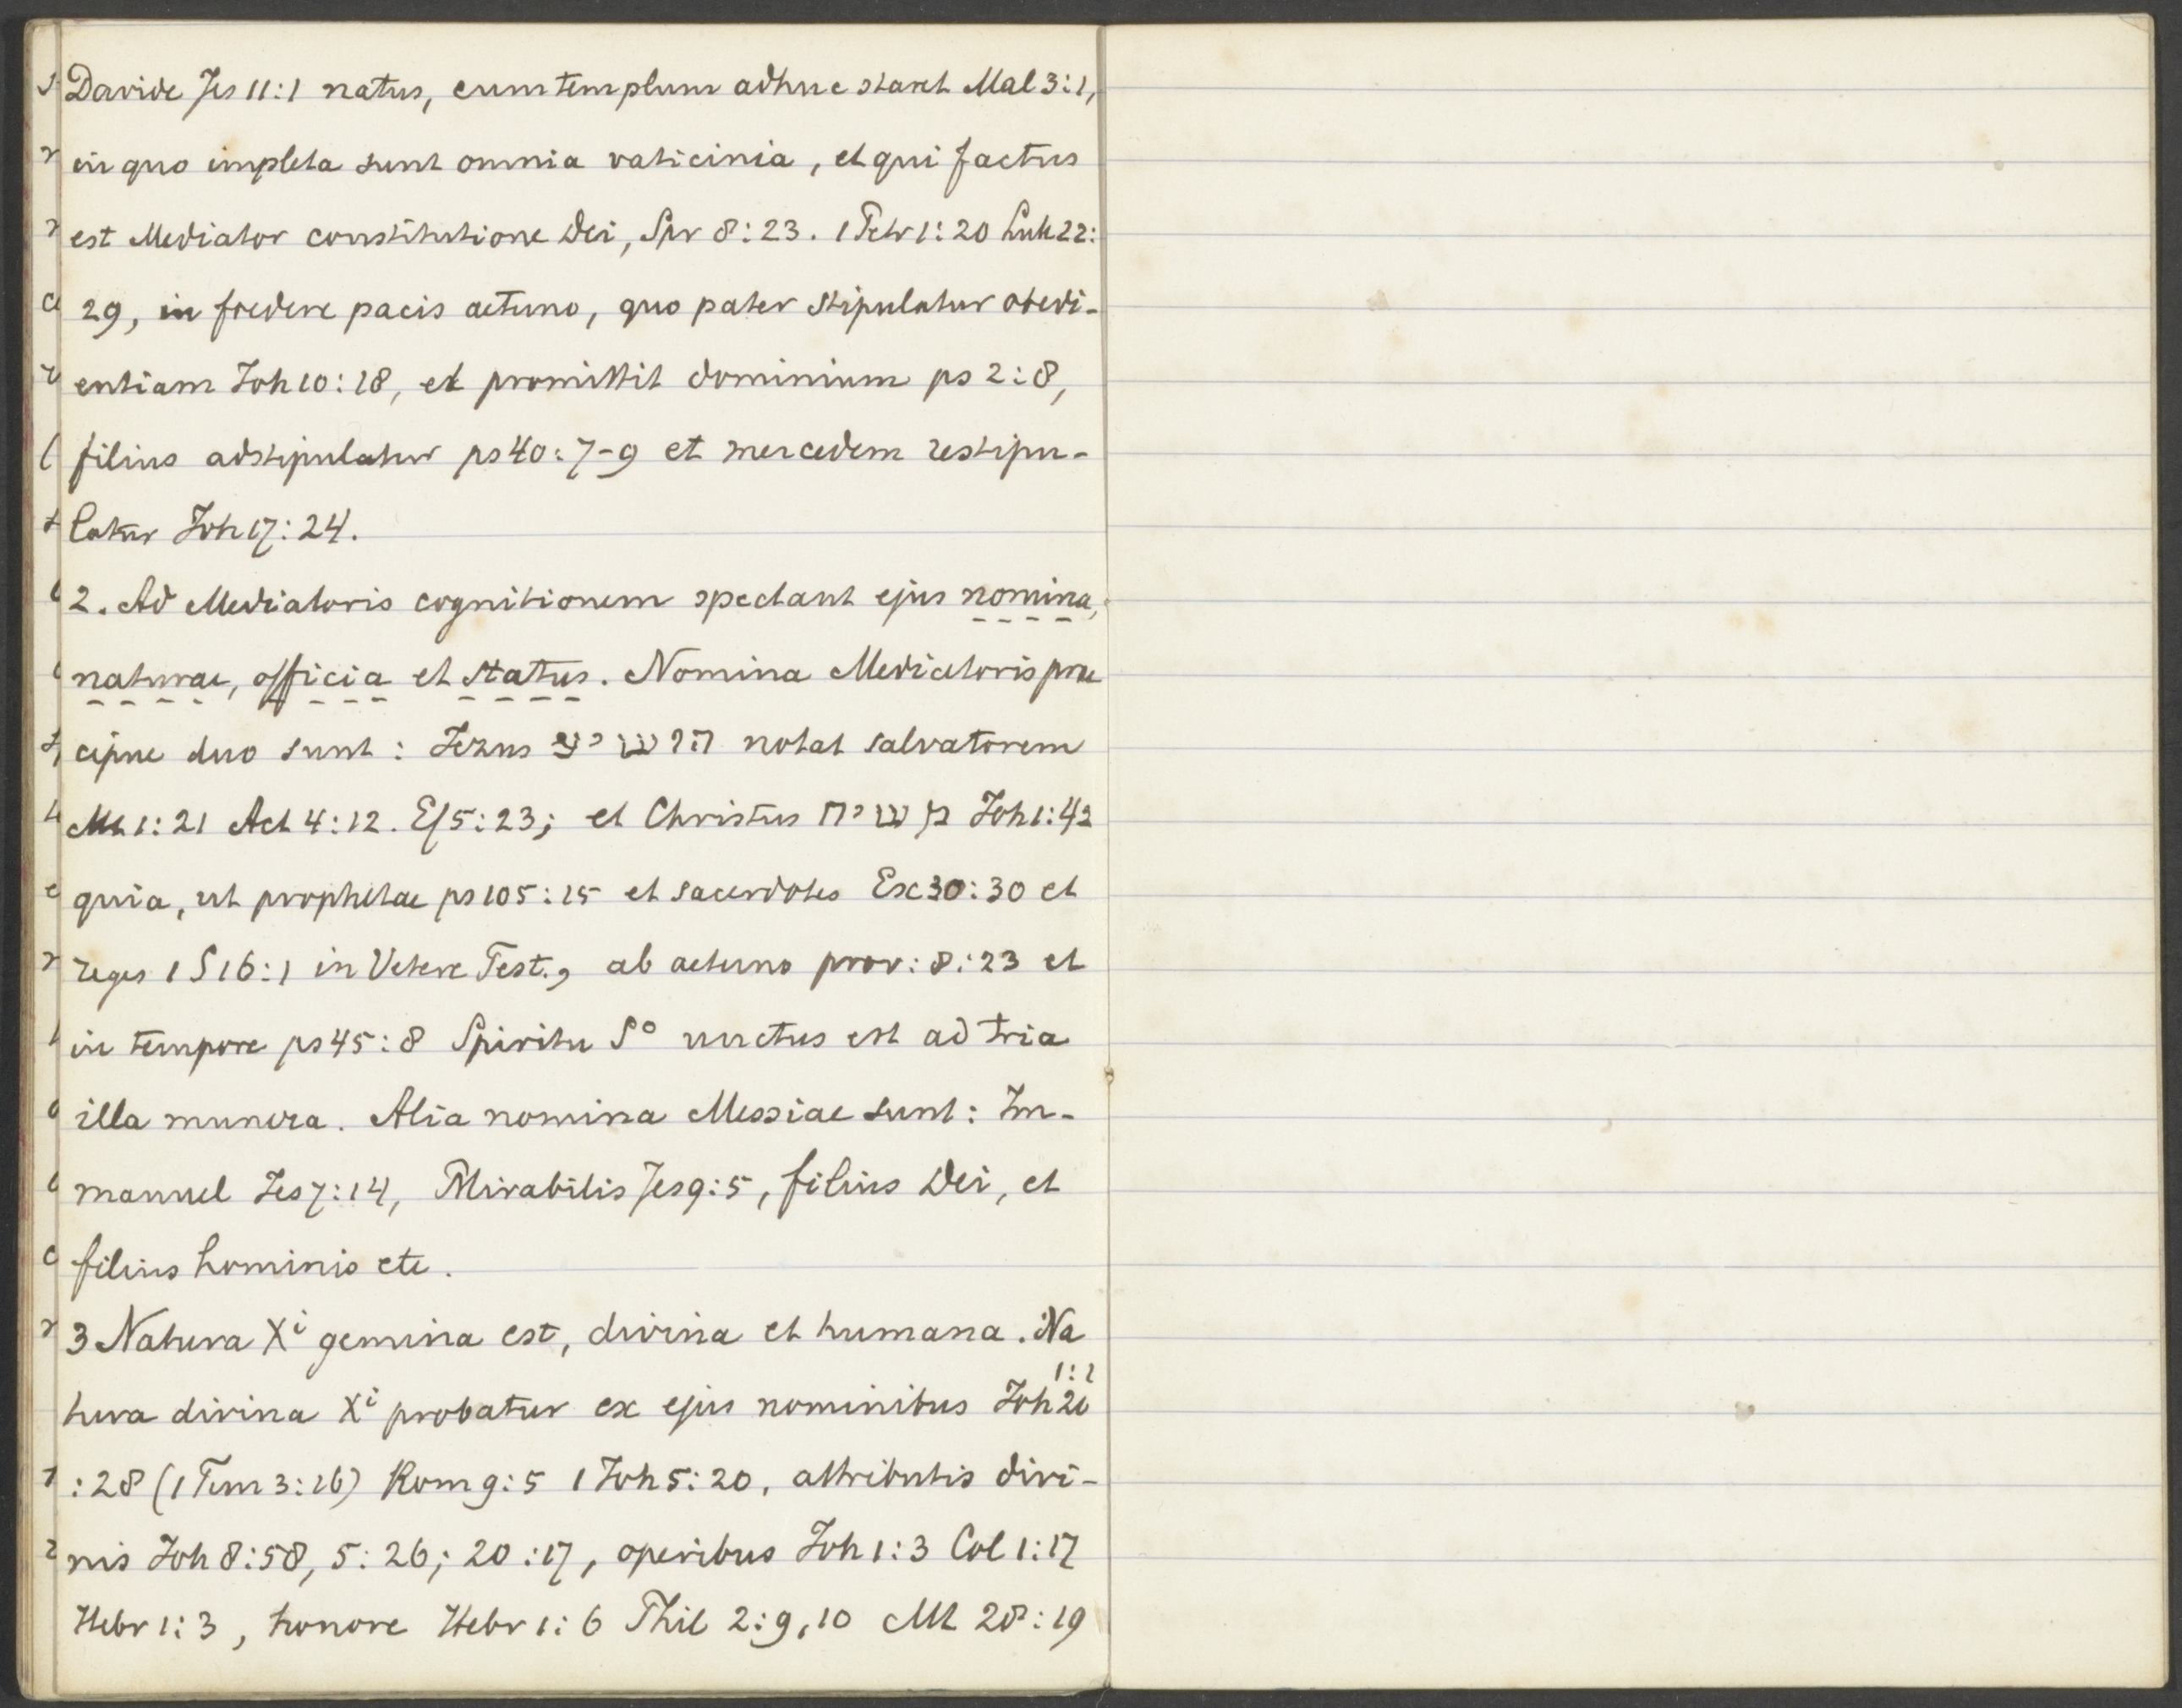 Davide Jes 11:1 natus, cum templum adhuc staret Mal 3:1,
in quo impleta sunt omnia vaticinia, et qui factus
est Mediator constitutione Dei, Spr 8:23. 1 Petr 1:20 Luk 22:
29, in foedere pacis aeterno, quo pater stipulatur obedi-
entiam Joh 10:18, et promittit dominium ps 2:8,
filius adstipulatur ps 40:7-9 et mercedem restipu-
latur Joh 17:24.
2. Ad Mediatoris cognitionem spectant ejus nomina,
naturae, officia et status. Nomina Mediatoris prae
cipue duo sunt: Jezus notat salvatorem
Mt 1:21 Act 4:12. Ef 5:23; et Christus משיח Joh 1:42
quia, ut prophetae ps 105:15 et sacerdotes Ex 30:30 et
reges 1 S 16:1 in Vetere Test., ab aeterno prov: 8:23 et
in tempore ps 45:8 Spiritu S° unctus est ad tria
illa munera. Alia nomina Messiae sunt: Im-
manuel Jes 7:14, Mirabilis Jes 9:5, filius Dei, et
filius hominis etc.
3 Natura Xⁱ gemina est, divina et humana. Na
1:1
tura divina Xⁱ probatur ex ejus nominibus Joh 20
:28 (1 Tim 3:16) Rom 9:5 1 Joh 5:20, attributis divi-
nis Joh 8:58, 5:26; 20:17, operibus Joh 1:3 Col 1:17
Hebr 1:3, honore Hebr 1:6 Phil 2:9,10 Mt 28:19